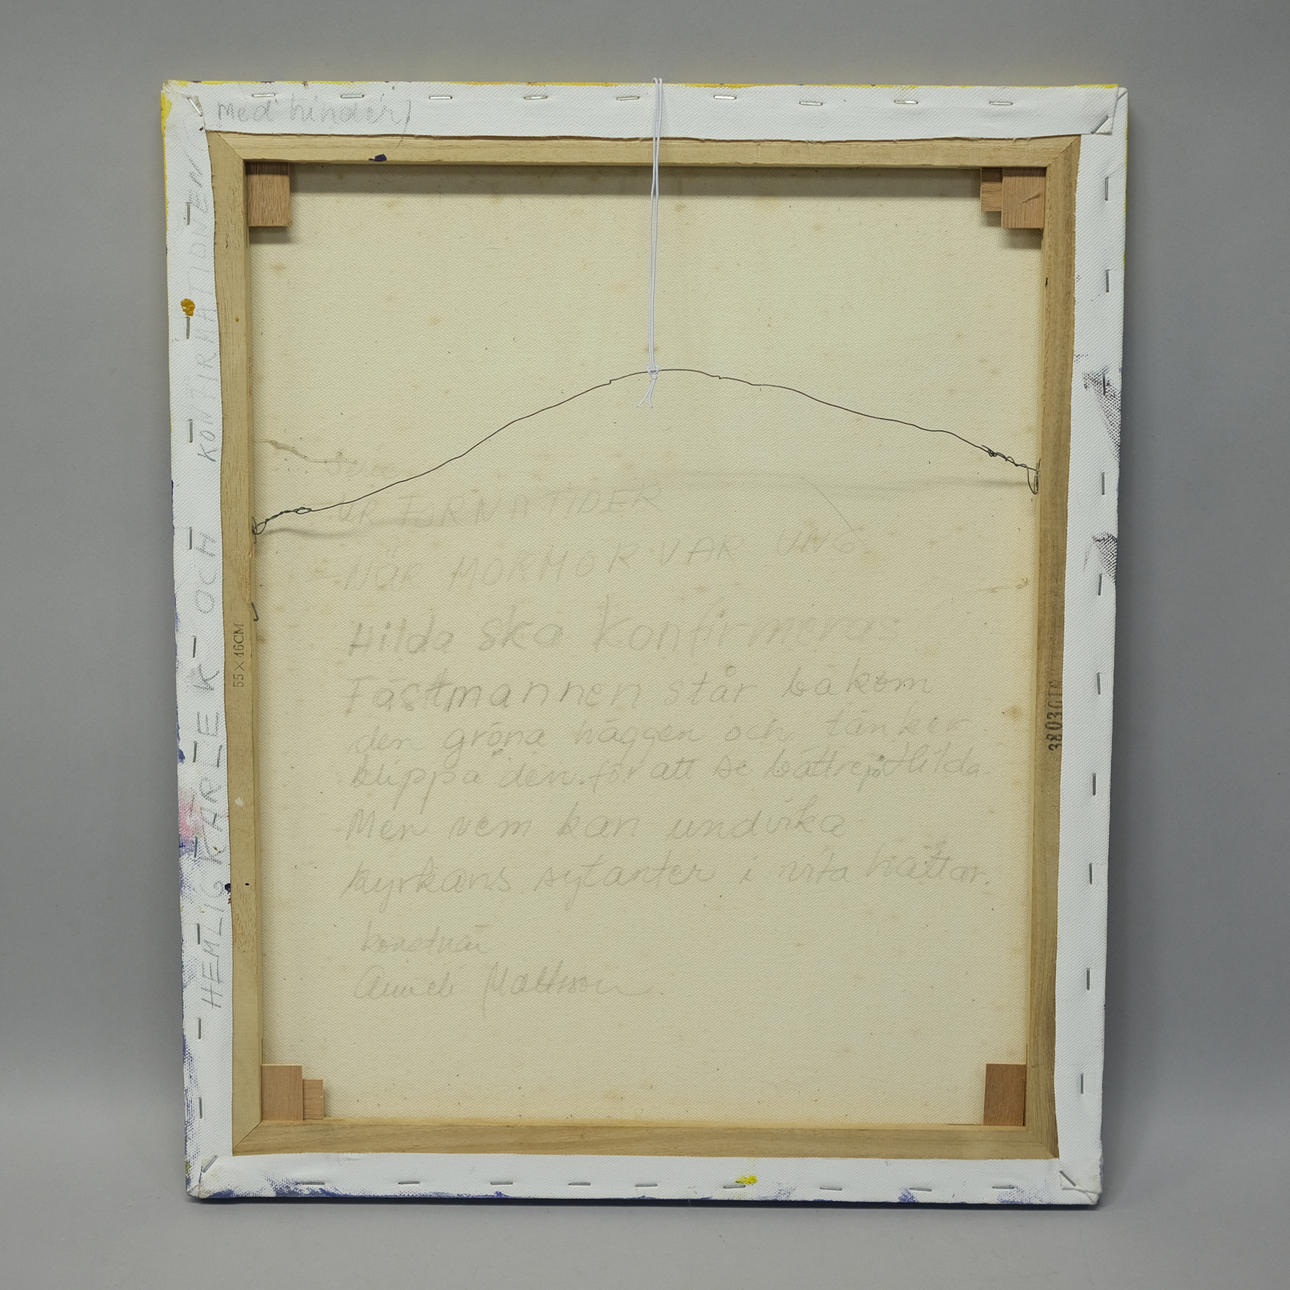 med hinder)
HEMLIG KÄRLEK - OCH KONFIRMATIONEN
UR FORNATIDER
NÄR MORMOR VAR UNG
Hilda ska konfirmeras
Fästmannen står bakom
den gröna häggen och tänker
klippa den för att se bättre på Hilda.
Men vem kan undvika
kyrkans sytanter i vita hättor.
konstnär
Mattsson
55 × 46CM